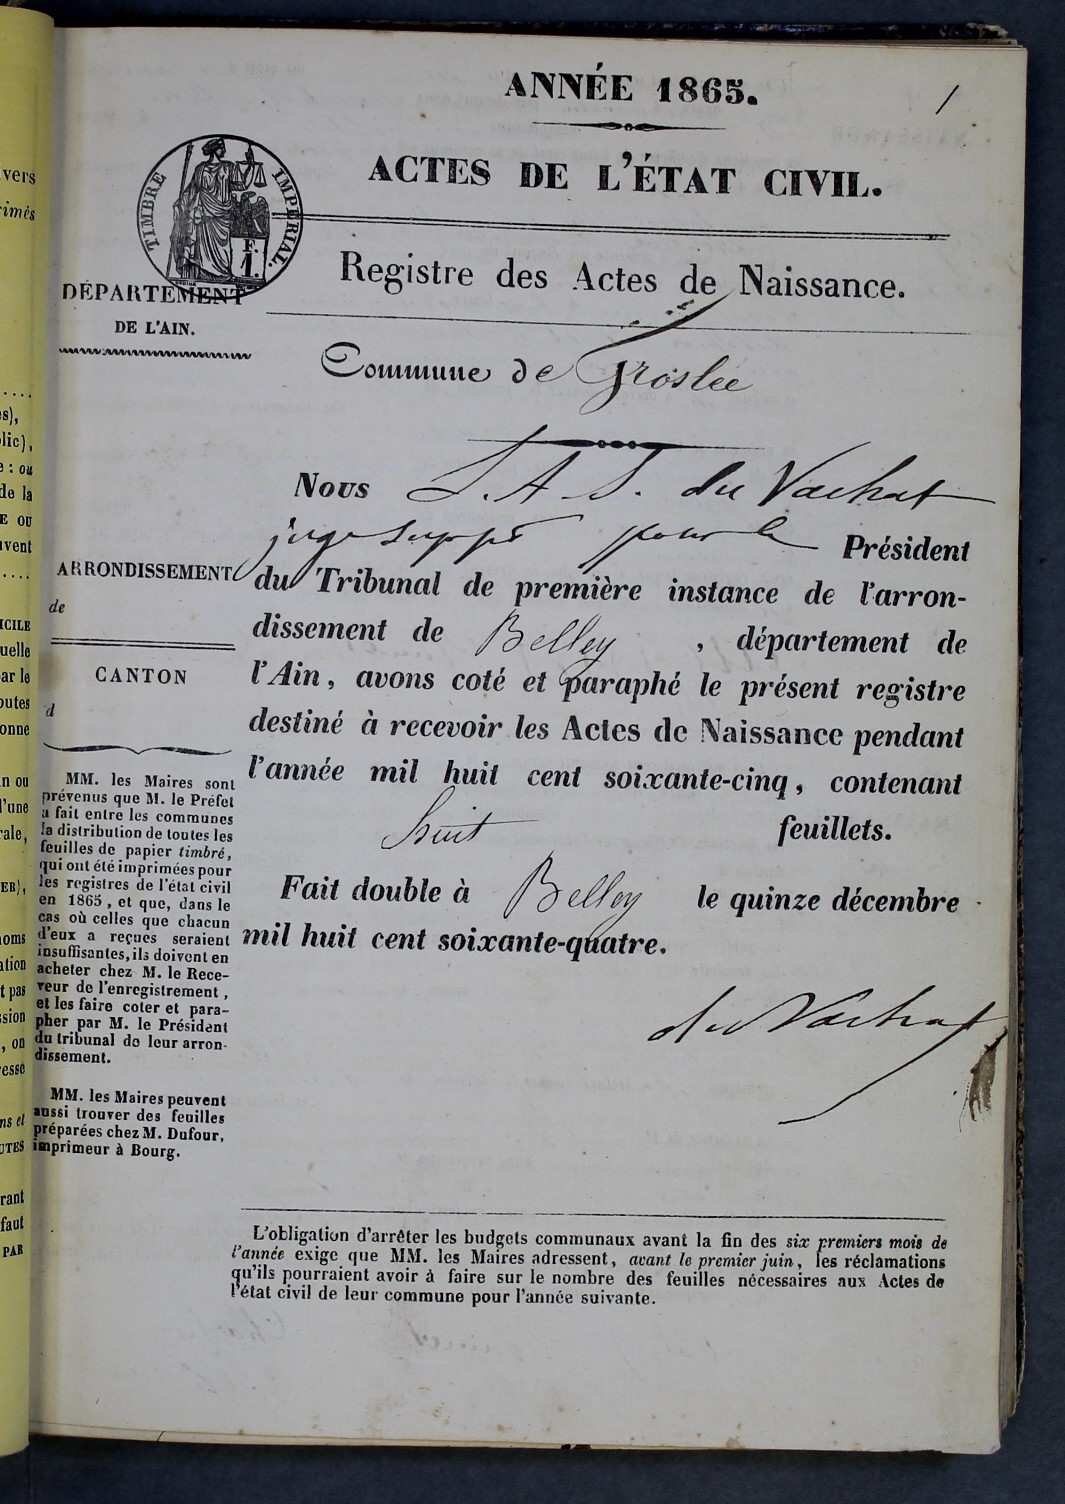 ANNÉE 1865.
1
ACTES DE L'ÉTAT CIVIL.
TIMBRE IMPÉRIAL.
F.
1.
Registre des Actes de Naissance.
DÉPARTEMENT
DE L'AIN.
Commune de Groslée
Nous L. A. S. du Vachat
juge suppt pour le Président
du Tribunal de première instance de l'arron-
dissement de Belley, département de
l'Ain, avons coté et paraphé le présent registre
destiné à recevoir les Actes de Naissance pendant
l'année mil huit cent soixante-cinq, contenant
huit feuillets.
Fait double à Belley le quinze décembre
mil huit cent soixante-quatre.
du Vachat
ARRONDISSEMENT
de
CANTON
d
MM. les Maires sont
prévenus que M. le Préfet
a fait entre les communes
la distribution de toutes les
feuilles de papier timbré,
qui ont été imprimées pour
les registres de l'état civil
en 1865, et que, dans le
cas où celles que chacun
d'eux a reçues seraient
insuffisantes, ils doivent en
acheter chez M. le Rece-
veur de l'enregistrement,
et les faire coter et para-
pher par M. le Président
du tribunal de leur arron-
dissement.
MM. les Maires peuvent
aussi trouver des feuilles
préparées chez M. Dufour,
imprimeur à Bourg.
L'obligation d'arrêter les budgets communaux avant la fin des six premiers mois de
l'année exige que MM. les Maires adressent, avant le premier juin, les réclamations
qu'ils pourraient avoir à faire sur le nombre des feuilles nécessaires aux Actes de
l'état civil de leur commune pour l'année suivante.